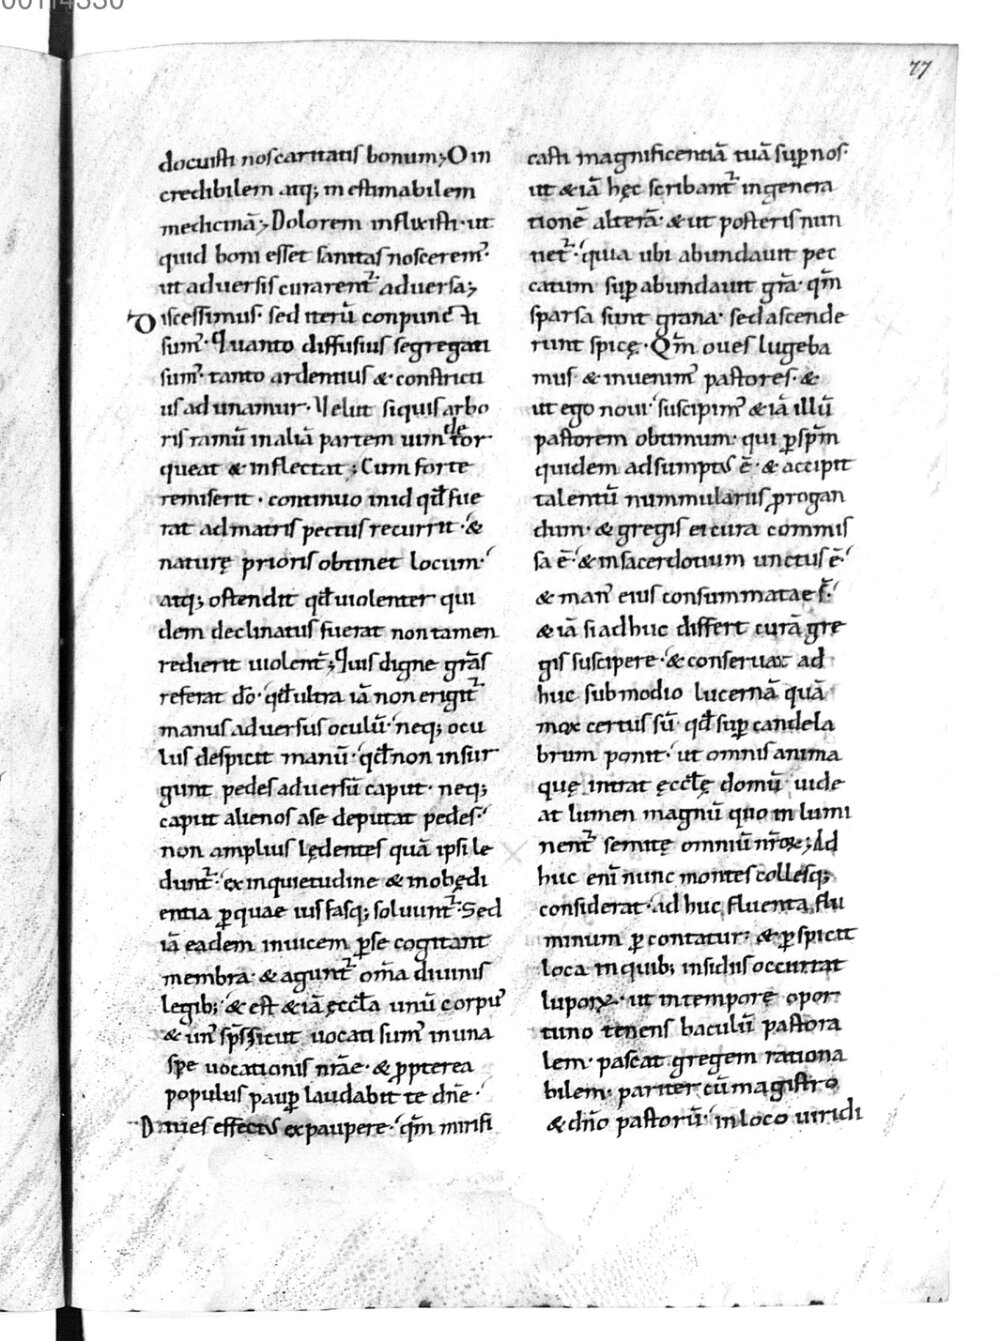 77
docuisti nos caritatis bonum; O in
credibilem atq; inestimabilem
medicinā; Dolorem influxisti· ut
quid boni esset sanitas nosceremꝰ·
ut adversis curarent᷑ adversa;
Discessimus· sed iterū conpuncti
sumꝰ· Quanto diffusius segregati
sumꝰ· tanto ardentius &· constricti
us ad unamur· Velut si quis arbo
ris ramū in aliā partem uim detor
queat & inflectat; Cum forte
remiserit· continuo in id qđ fue
rat ad matris pectus recurrit· &
naturę prioris obtinet locum·
atq; ostendit qđ uiolenter qui
dem declinatus fuerat non tamen
redierit uiolent᷑; Quis digne grās
referat dō· qđ ultra iā non erigit᷑
manus adversus oculū· neq; ocu
lus despicit manū· qđ non insur
gunt pedes adversū caput· neq;
caput alienos a se deputat pedes·
non amplius lędentes quā ipsi le
dunt᷑· ex inquietudine & inobędi
entia ꝑ quae ius fasq; soluunt᷑· Sed
iā eadem inuicem ꝑ se cogitant
membra· & agunt᷑ om̄a diuinis
legib; & est & iā ęccła unū corpuꝰ
& unꝰ sp̄s sicut uocati sumꝰ in una
spe uocationis nr̄ae· & ꝓpterea
populus paup̱ laudabit te dn̄e·
Diues effectus ex paupere· qm̄ mirifi
casti magnificentiā tuā sup̱ nos·
ut & iā hęc scribant᷑ in genera
tionē alterā· & ut posteris nun
tiet᷑· quia ubi abundauit pec
catum sup̱abundauit gr̄a· qm̄
sparsa sunt grana· sed ascende
runt spicę· Qm̄ oues lugeba
mus· & inuenimꝰ pastores· &
ut ego noui suscipimꝰ & iā illū
pastorem obtimum· qui ꝑ sp̄m
quidem adsumptus ē· & accipit
talentū nummulariis ꝓrogan
dum· & gregis ei cura commis
sa ē· & in sacerdotium unctus ē·
& manꝰ eius consummatae s̄·
& iā si adhuc differt curā gre
gis suscipere· & conseruat ad
huc sub modio lucernā quā
mox certus sū· qđ sup̱ candela
brum ponit· ut omnis anima
quę intrat ęccłę domū uide
at lumen magnū quo in lumi
nent᷑ semitę omniū nr̄oꝝ; Ad
huc enī nunc montes collesq;
considerat· ad huc fluenta flu
minum ꝑcontatur; & ꝑspicit
loca in quib; insidiis occurrat
lupoꝝ· ut in tempore opor
tuno tenens baculū pastora
lem· pascat gregem rationa
bilem· pariter cū magistro
& dn̄o pastorū· in loco uiridi